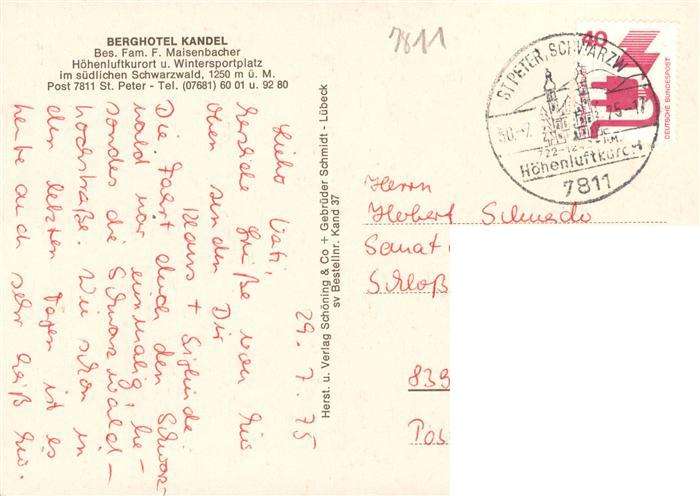 BERGHOTEL KANDEL
Bes. Fam. F. Maisenbacher
Höhenluftkurort u. Wintersportplatz
im südlichen Schwarzwald, 1250 m ü. M.
Post 7811 St. Peter - Tel. (07681) 60 01 u. 92 80
7811
29. 7. 75
Lieber
herzliche Grüße von hier
oben senden Dir
Klaus + Siglinde
Die Fahrt durch den Schwarz-
wald war einmalig, be-
sonders die Schwarzwald-
hochstraße. Wie schon in
den letzten Tagen ist es
heute auch sehr heiß hier.
Herst. u. Verlag Schöning & Co + Gebrüder Schmidt - Lübeck
sv Bestellnr. Kand 37
ST PETER, SCHWARZW
30.-7. 75-17
722-12
Höhenluftkurort
7811
40
DEUTSCHE BUNDESPOST
Herrn
Sanat
Schloß
839
Pos